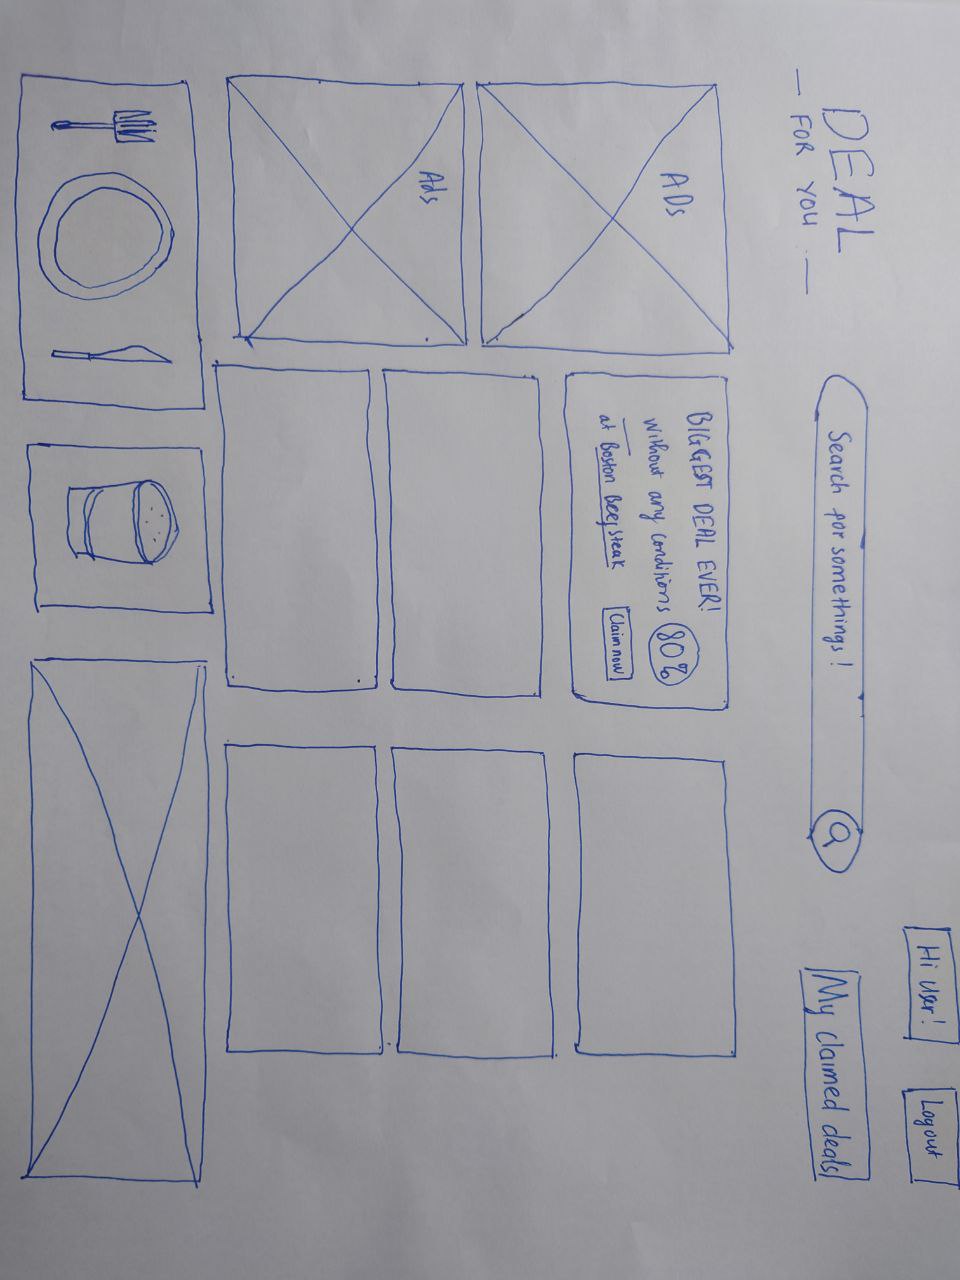 Hi User!
Logout
DEAL
— FOR YOU —
Search for somethings!
My claimed deals
ADs
BIGGEST DEAL EVER!
without any conditions
80%
at Boston Beefsteak
Claim now
Ads